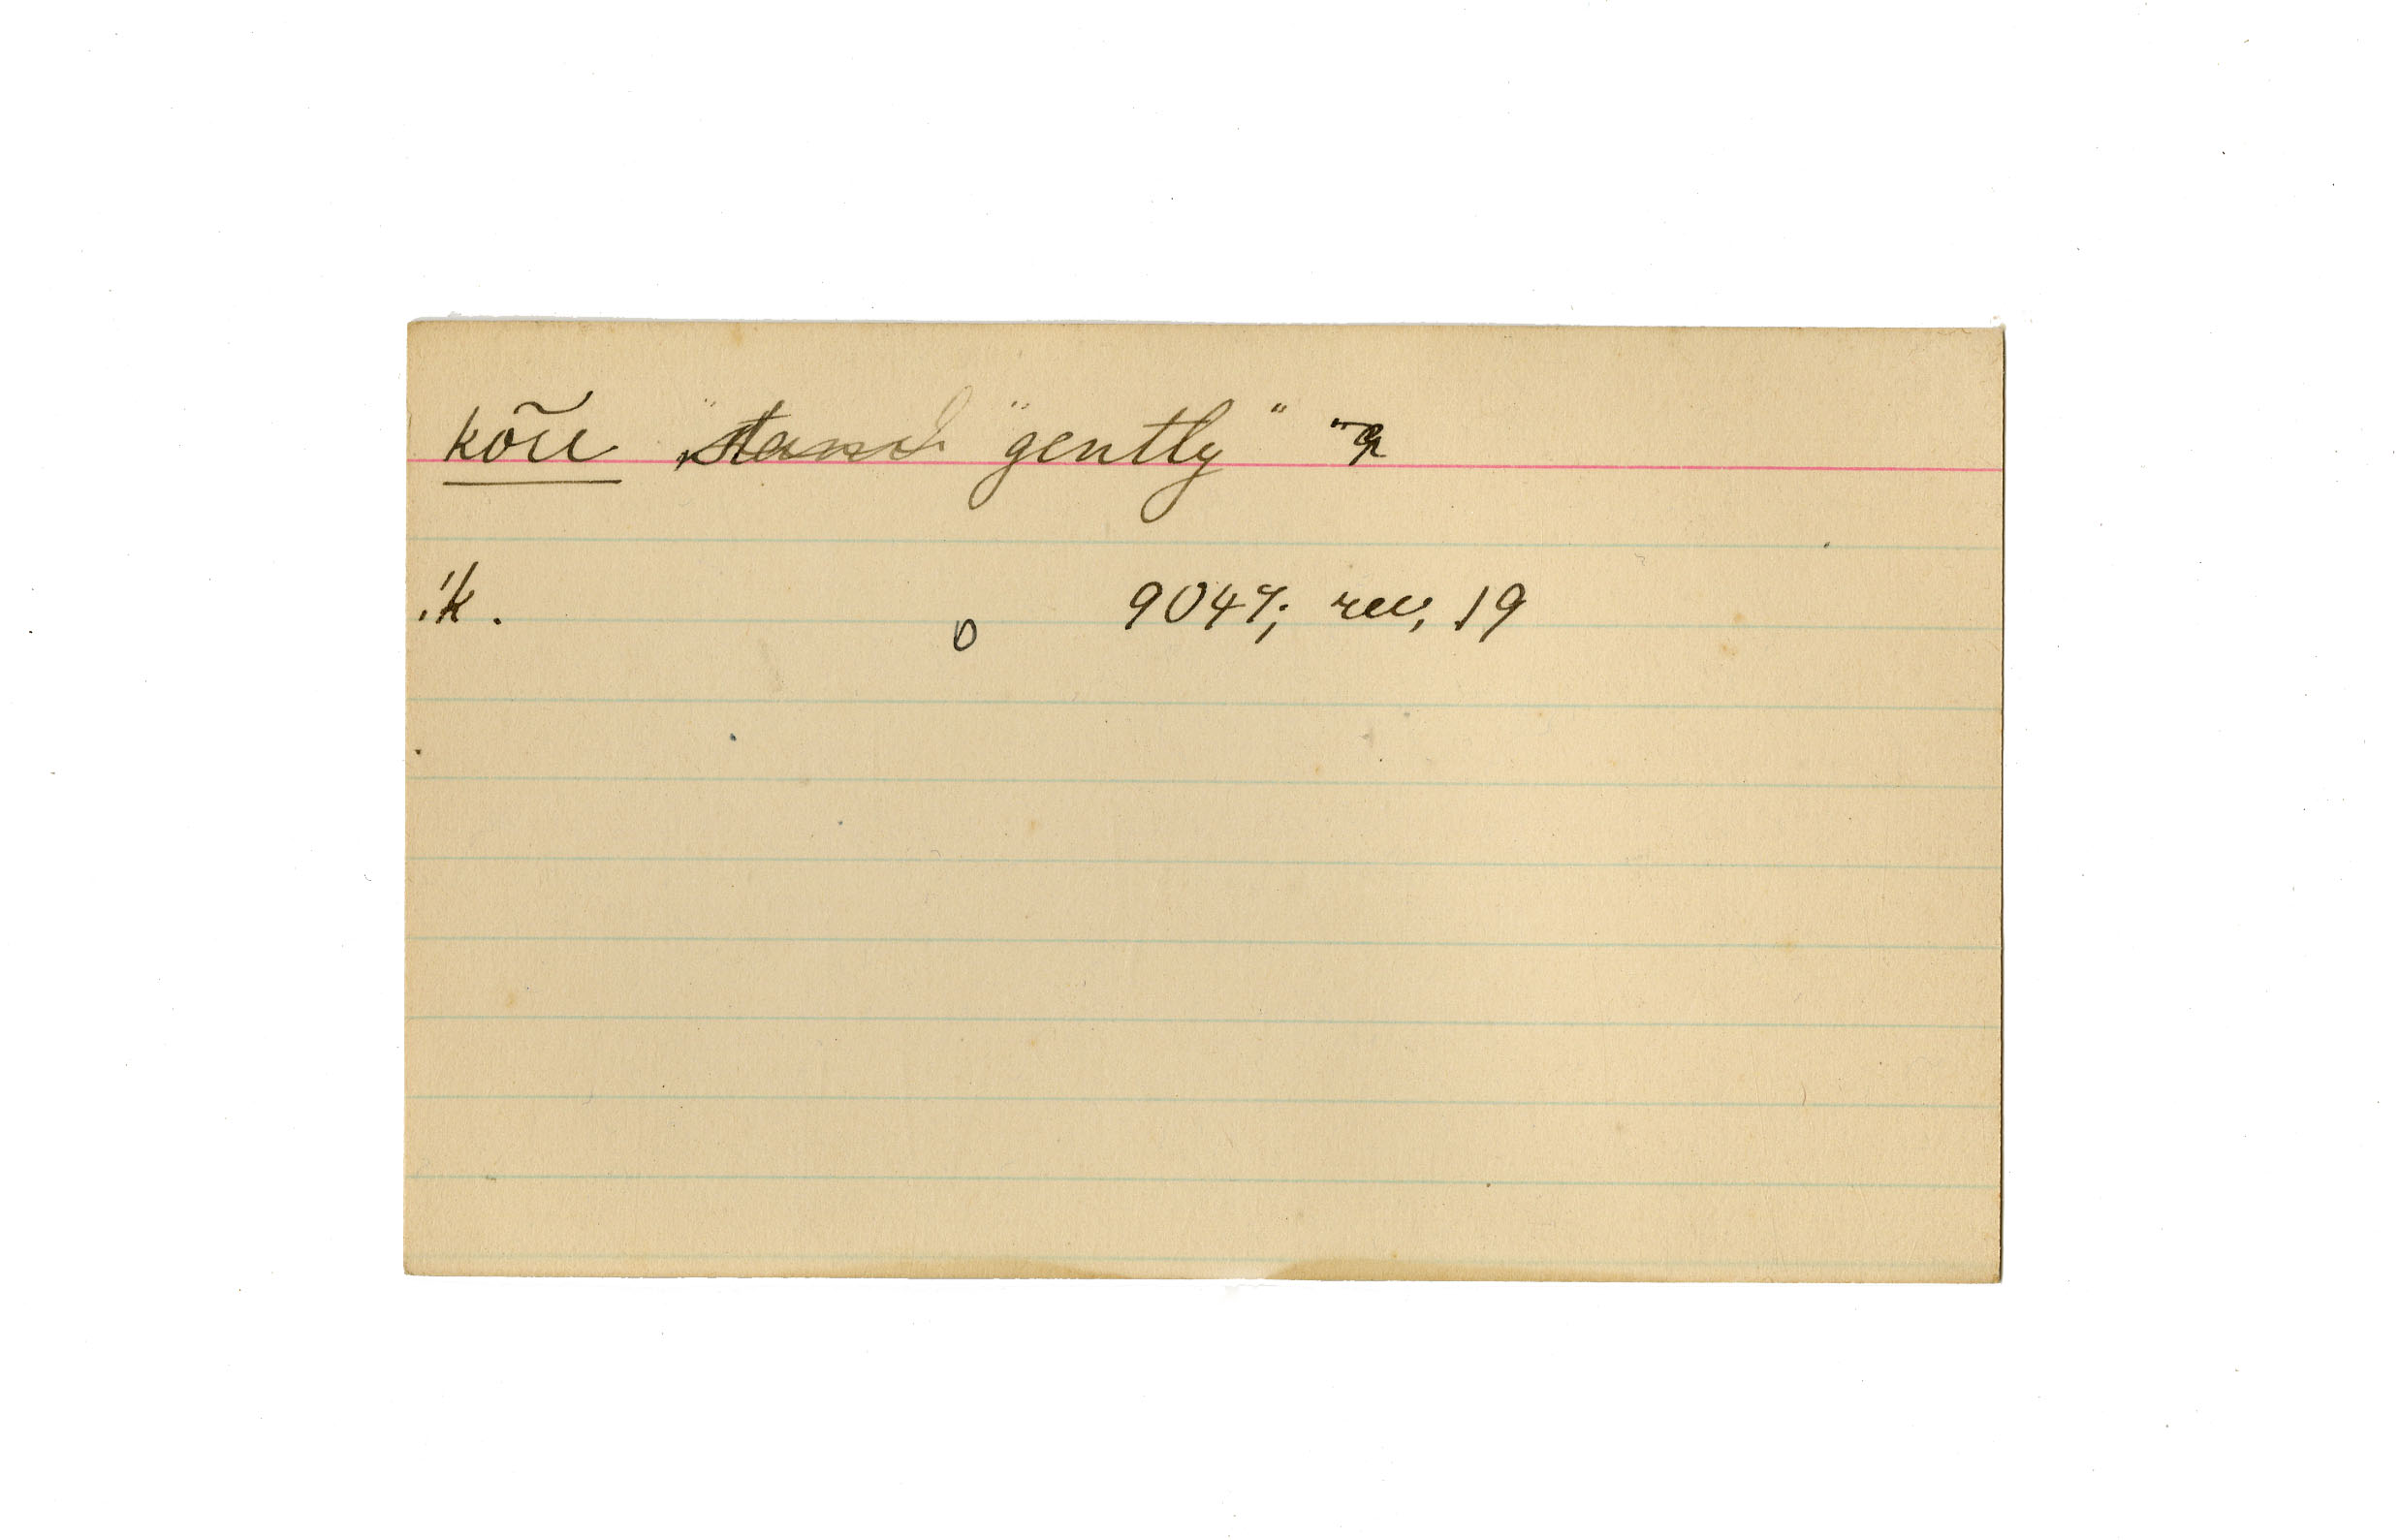 kõu "stand "gently"
:k. o 9047; rev, 19